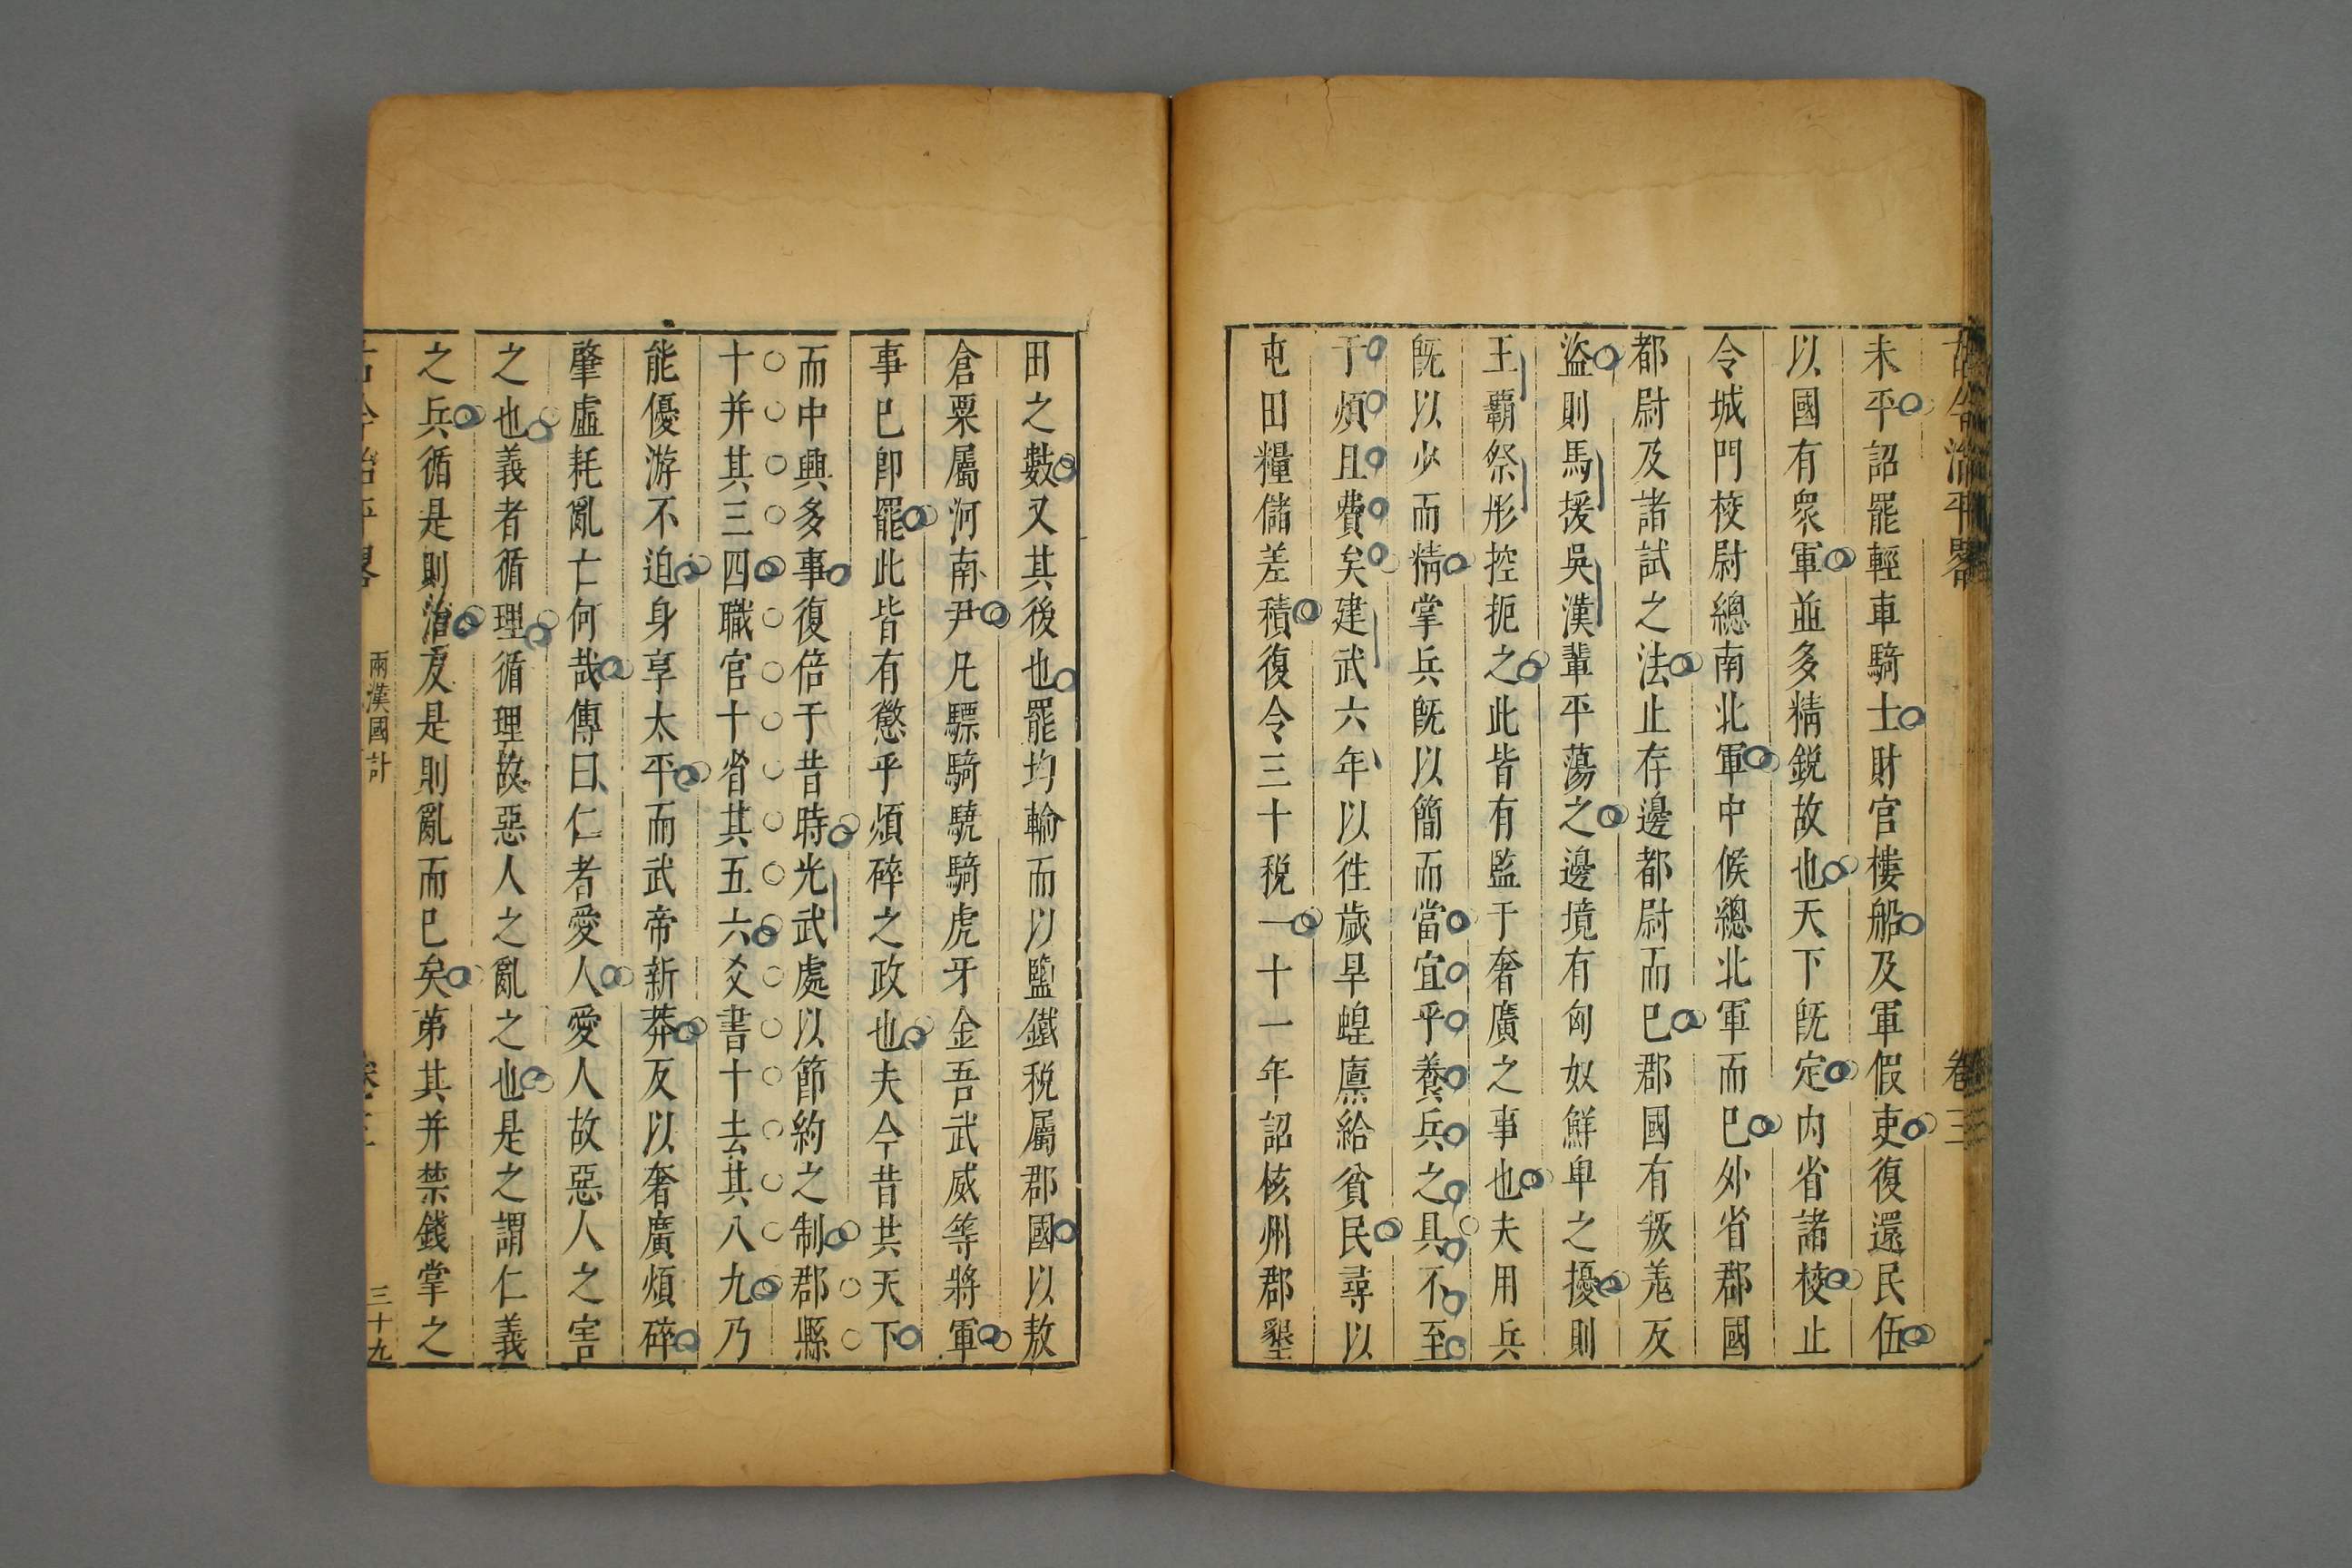 古今治平畧 卷三
未平詔罷輕車騎士財官樓船及軍假吏復還民伍
以國有衆軍並多精銳故也天下旣定内省諸校止
令城門校尉總南北軍中候總北軍而已外省郡國
都尉及諸試之法止存邊都尉而已郡國有叛羌反
盜則馬援吳漢輩平蕩之邊境有匈奴鮮卑之擾則
王霸祭肜控扼之此皆有監于奢廣之事也夫用兵
旣以少而精掌兵旣以簡而當宜乎養兵之具不至
于煩且費矣建武六年以往歲旱蝗廩給貧民尋以
屯田糧儲差積復令三十稅一十一年詔核州郡墾
田之數又其後也罷均輸而以鹽鐵稅屬郡國以敖
倉粟屬河南尹凡驃騎驍騎虎牙金吾武威等將軍
事已卽罷此皆有懲乎煩碎之政也夫今昔共天下
而中興多事復倍于昔時光武處以節約之制郡縣
十并其三四職官十省其五六爻書十去其八九乃
能優游不迫身享太平而武帝新莽反以奢廣煩碎
肇虛耗亂亡何哉傳曰仁者愛人愛人故惡人之害
之也義者循理循理故惡人之亂之也是之謂仁義
之兵循是則治反是則亂而已矣苐其并禁錢掌之
古今治平畧 兩漢國計 卷三 三十九